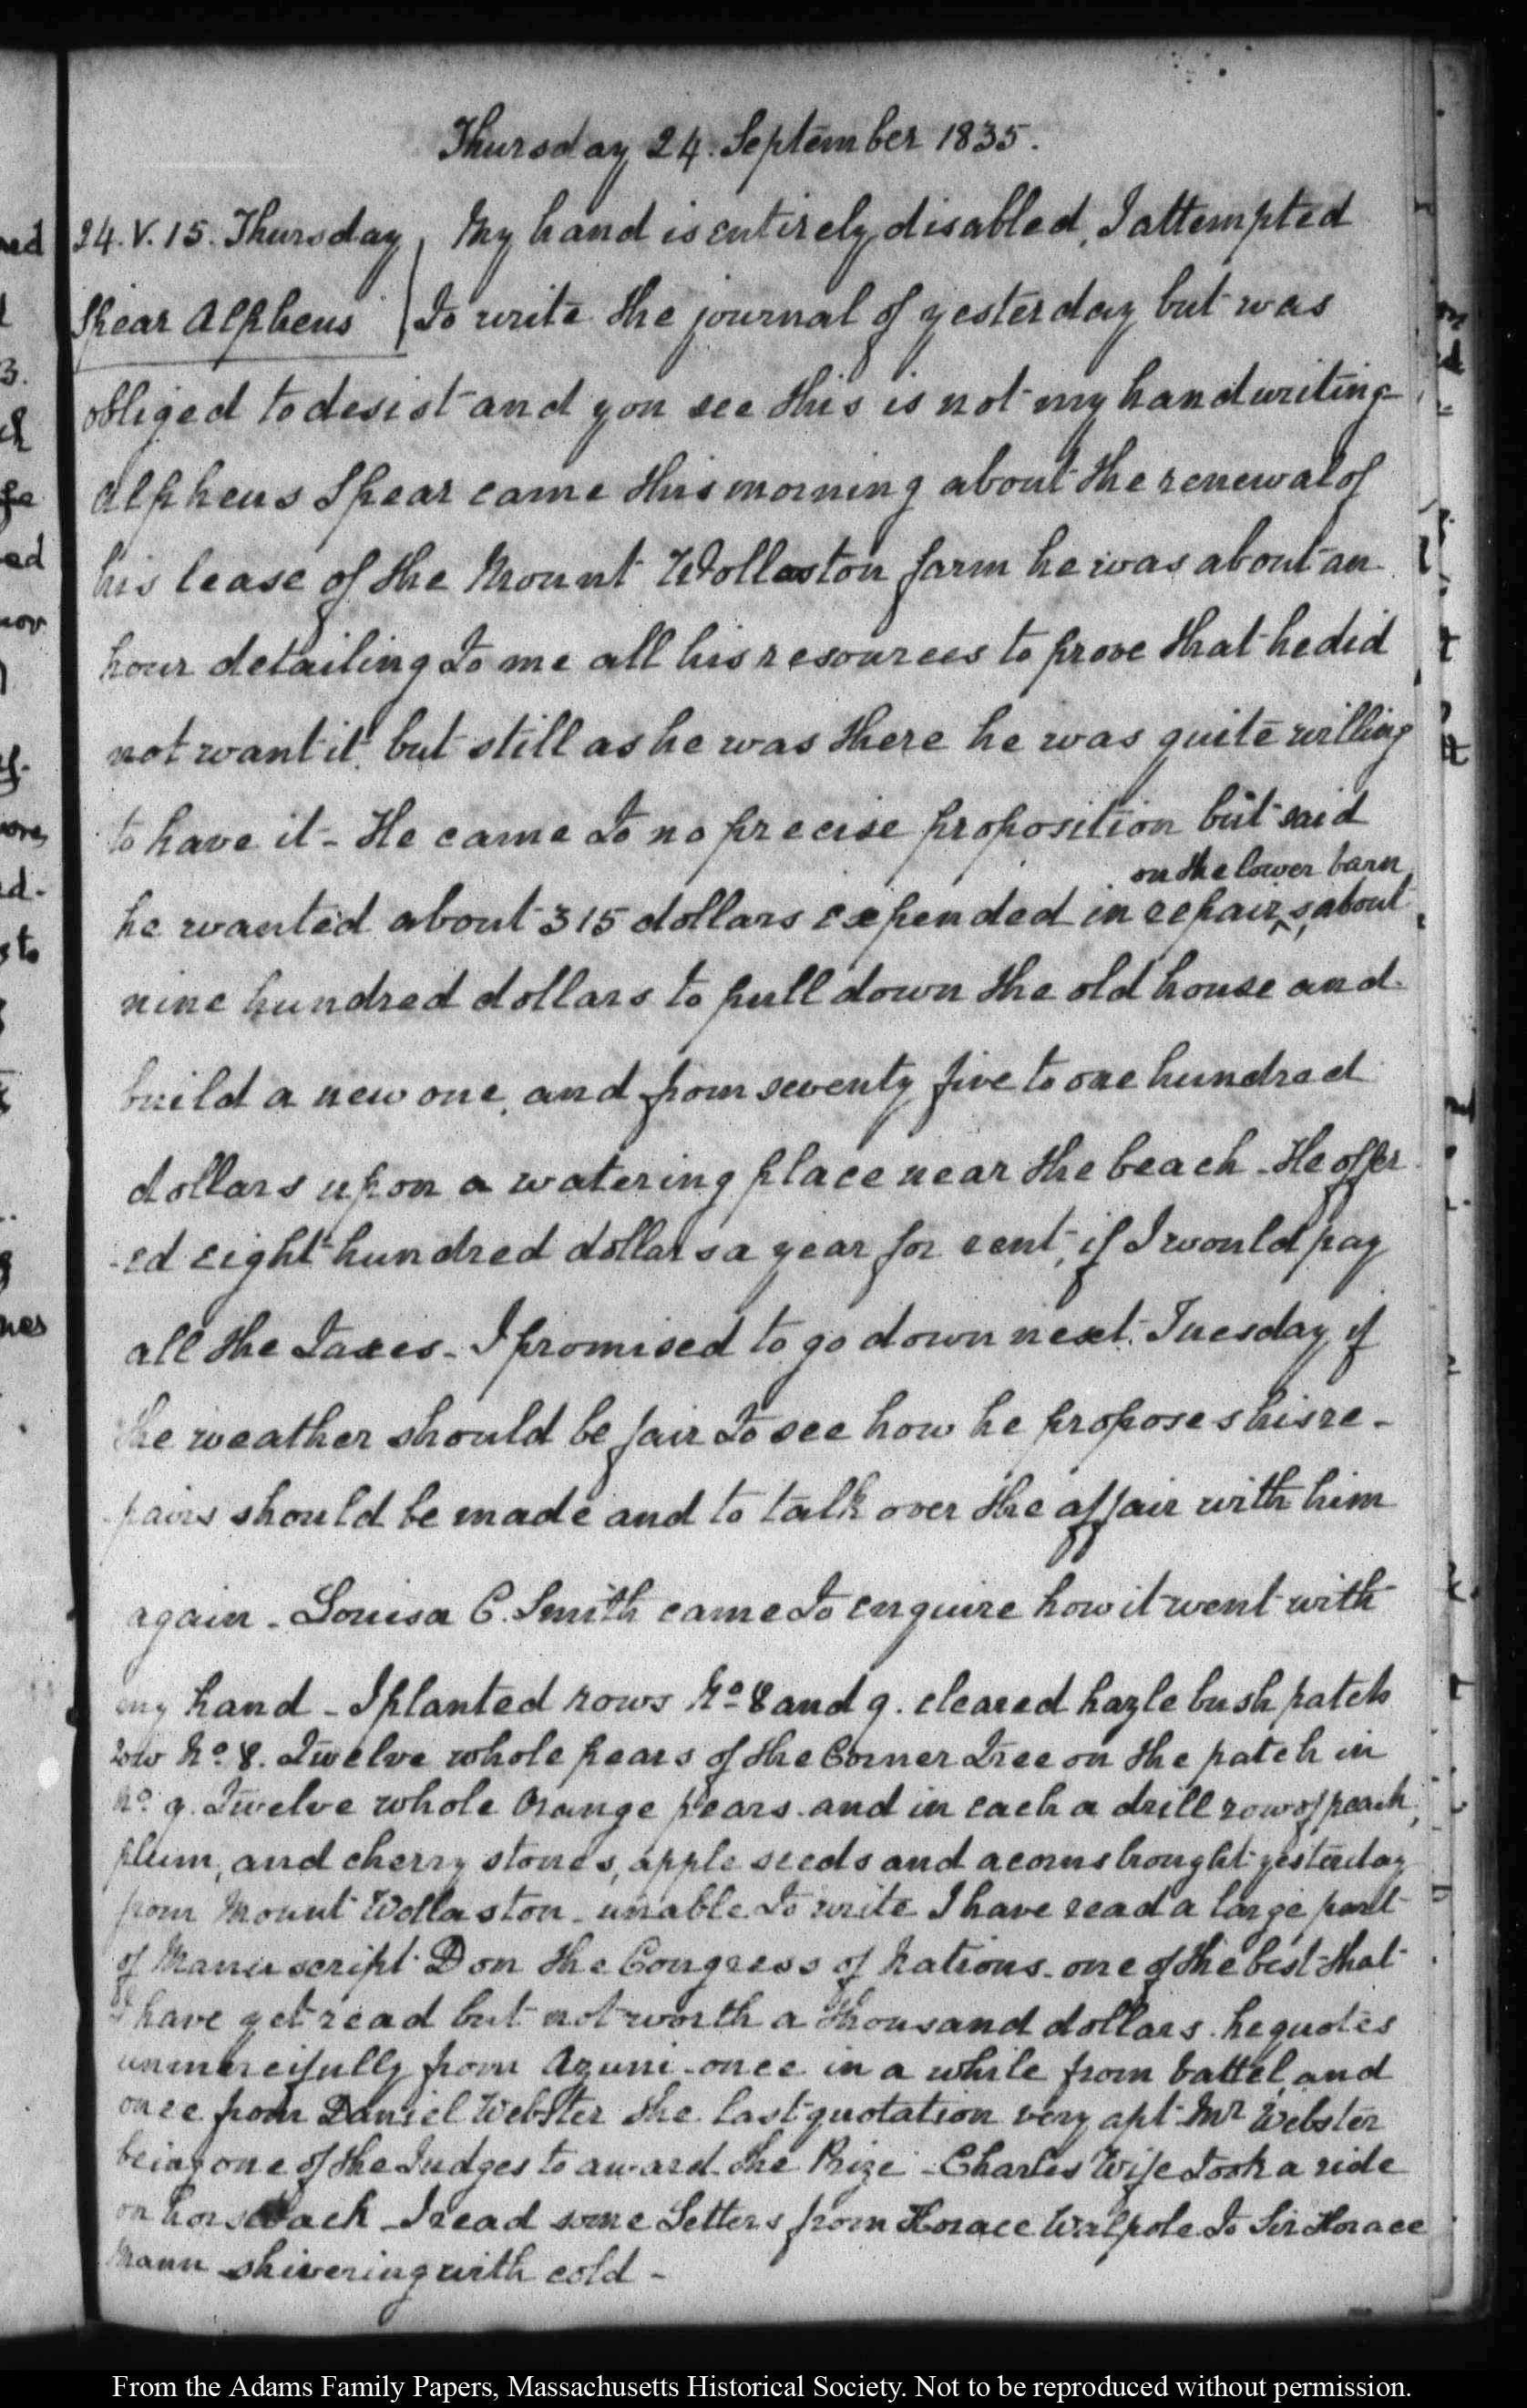 Thursday 24. September 1835.
24. V. 15. Thursday
Spear Alpheus
My hand is entirely disabled, I attempted
to write the journal of yesterday but was
obliged to desist and you see this is not my handwriting
Alpheus Spear came this morning about the renewal of
his lease of the Mount Wollaston farm he was about an
hour detailing to me all his resources to prove that he did
not want it, but still as he was there he was quite willing
to have it - He came to no precise proposition but said
on the lower barn
he wanted about 315 dollars expended in repairs, about
nine hundred dollars to pull down the old house and
build a new one, and from seventy five to one hundred
dollars upon a watering place near the beach - He offer
-ed eight hundred dollars a year for rent, if I would pay
all the taxes - I promised to go down next Tuesday if
the weather should be fair to see how he proposes his re-
pairs should be made and to talk over the affair with him
again - Louisa C. Smith came to enquire how it went with
my hand - I planted rows No. 8 and 9. cleared hazle bush patch
row No. 8. Twelve whole pears of the Corner tree on the patch in
No. 9. Twelve whole Orange pears and in each a drill row of peach,
plum, and cherry stones, apple seeds and acorns brought yesterday
from Mount Wollaston - unable to write I have read a large part
of Manuscript D on the Congress of Nations - one of the best that
I have yet read but not worth a thousand dollars. he quotes
unmercifully from Azuni - once in a while from Vattel, and
once from Daniel Webster the last quotation very apt Mr Webster
being one of the Judges to award the Prize - Charles' Wife took a ride
on horseback - I read some Letters from Horace Walpole to Sir Horace
Mann shivering with cold -
ned
3.
ed
nov
d.
s to
nes
From the Adams Family Papers, Massachusetts Historical Society. Not to be reproduced without permission.